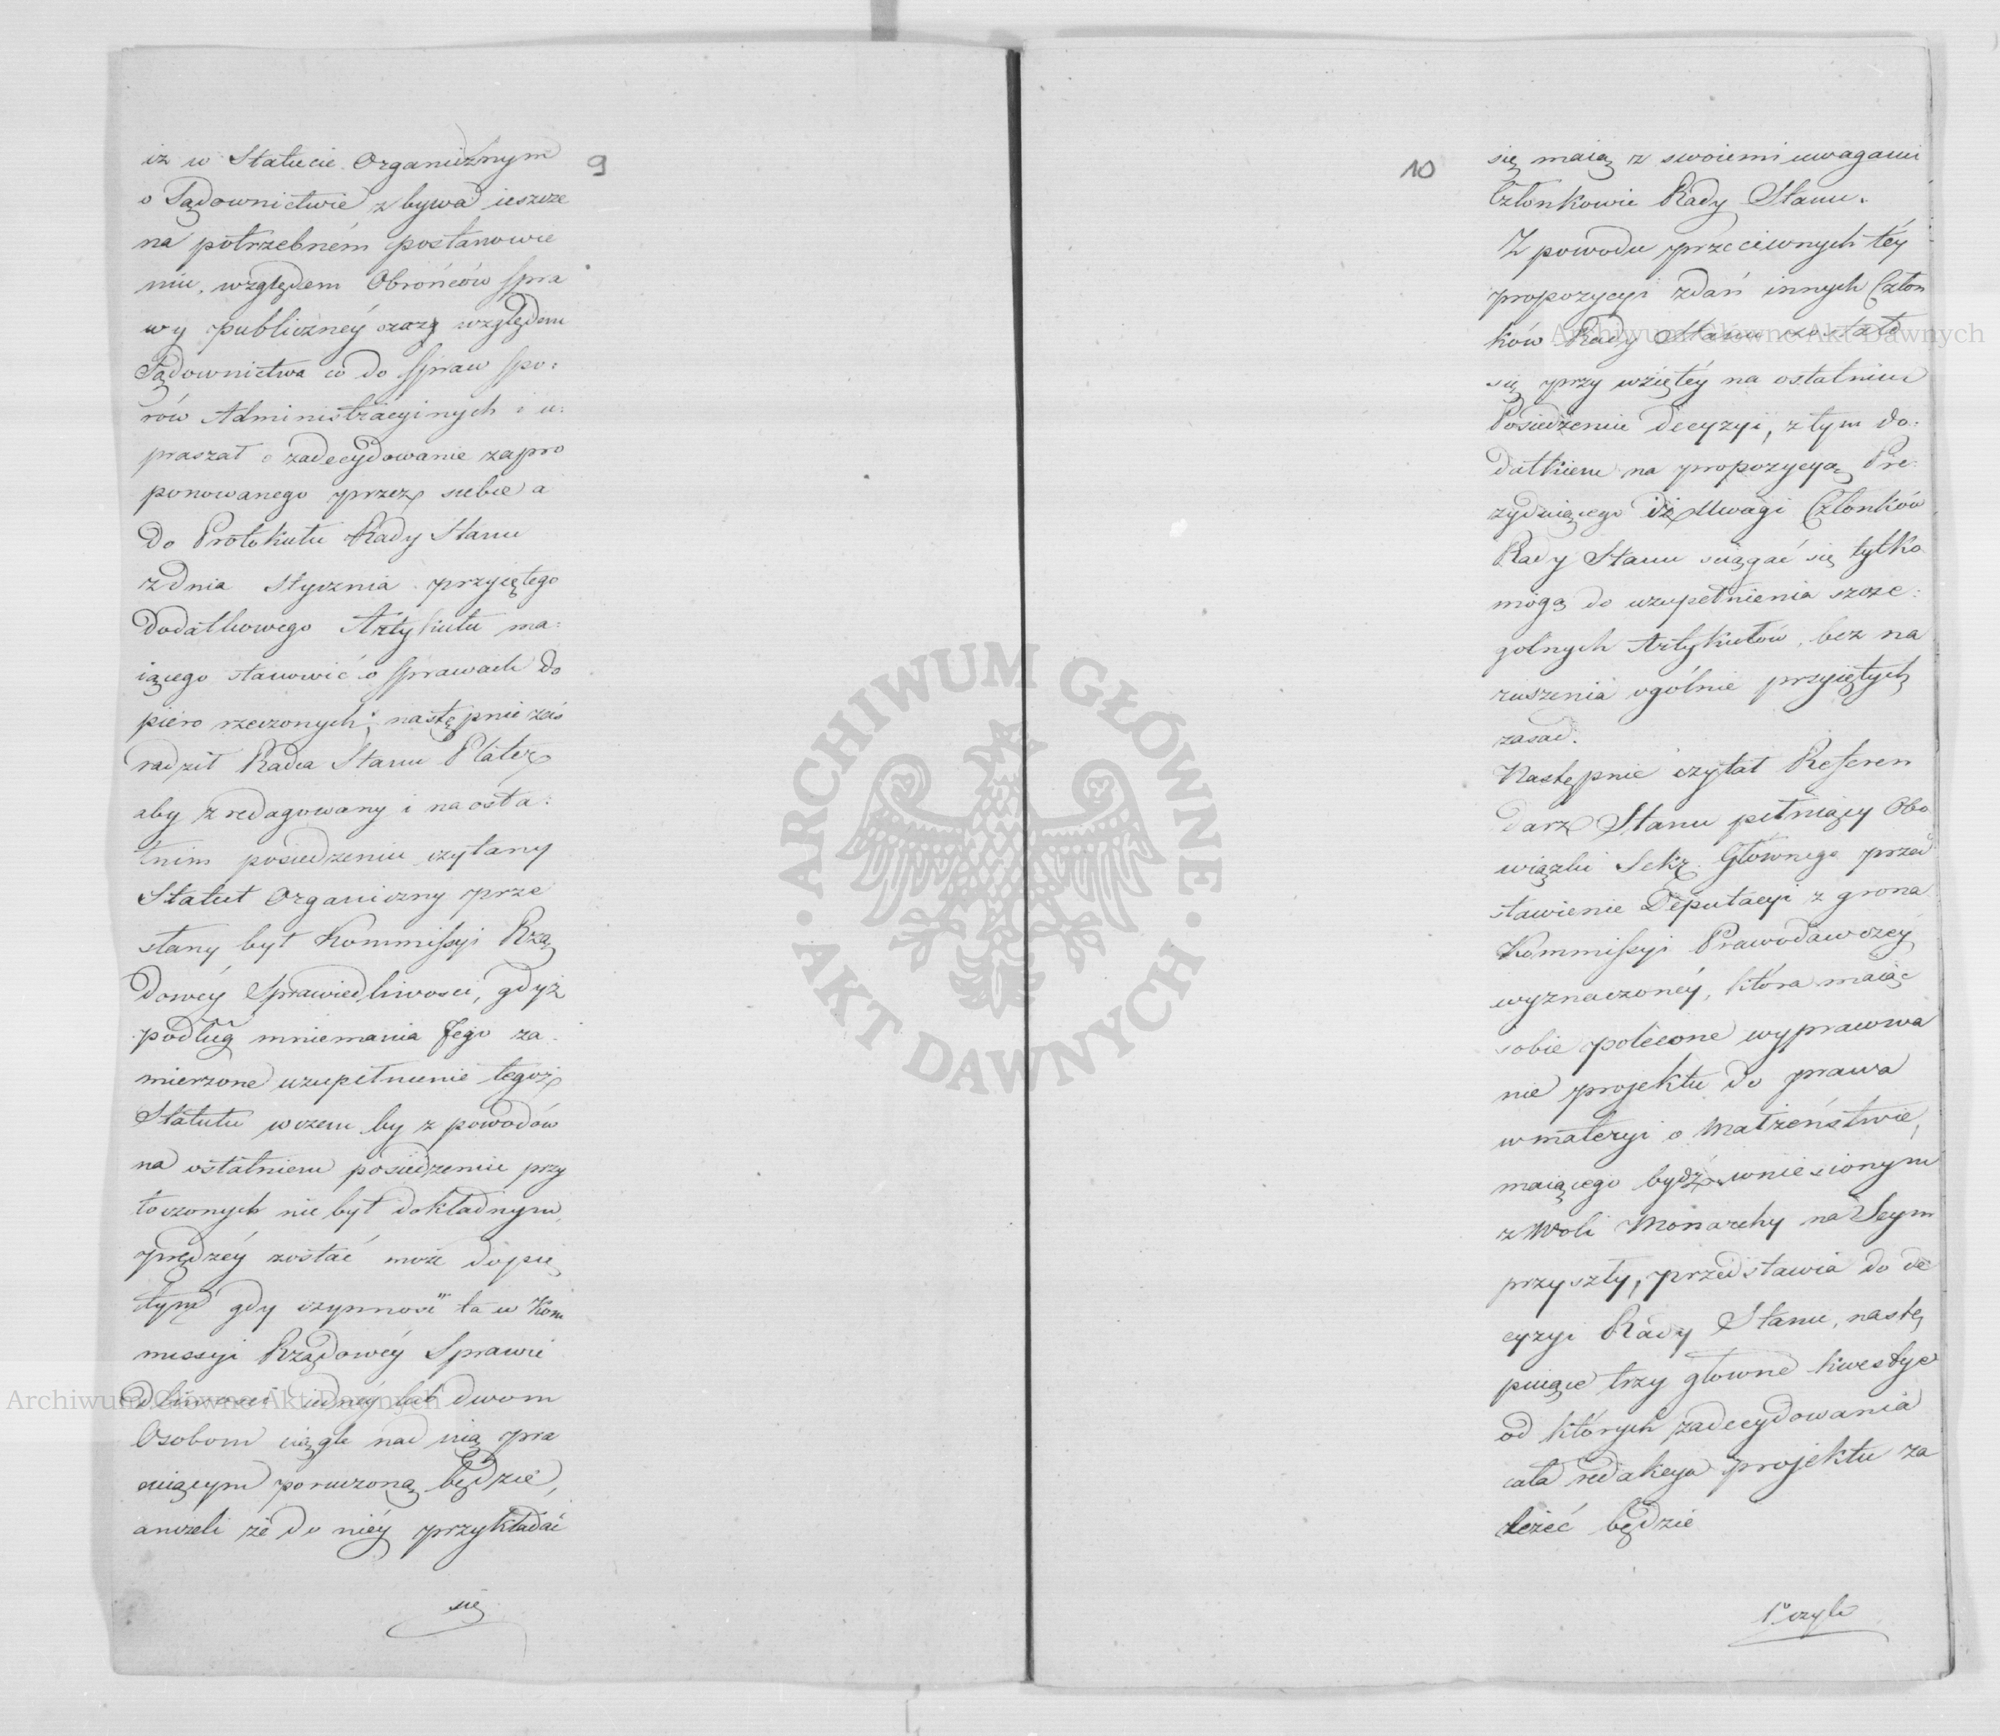 9
iż w Statucie Organicznym
o Sądownictwie zbywa ieszcze
na potrzebném postanowie
niu, względem Obrońców Spra
wy publicznéy oraz względem
Sądownictwa co do Spraw Spo:
rów Administracyinych i u:
praszał o zadecydowanie zapro
ponowanego przez siebie a
do Protokułu Rady Stanu
z dnia Stycznia przyiętego
Dodatkowego Artykułu ma:
iącego stanowić o sprawach do
piéro rzeczonych; następnie zaś
radził Radca Stanu Plater
aby zredagowany i na osta:
tnim posiedzeniu czytany
Statut Organiczny prze
słany był Kommissyi Rzą
dowéy Sprawiedliwości, gdyż
podług mniemania Jego za
mierzone uzupełnienie tegoż
Statutu w czem by z powodów
na ostatniem posiedzeniu przy
toczonych nie był dokładnym,
prędzéy zostać może dopię
tym gdy czynność ta w Kom
missyi Rządowéy Sprawie
dliwości iednéy lub dwom
Osobom ciągle nad nią pra
cuiącym poruczoną będzie,
aniżeli że do niéy przykładać
się
10
się maią z swoiemi uwagami
Członkowie Rady Stanu.
Z powodu przeciwnych téy
propozycyi zdań innych Człon
ków Rady Stanu zostało
się przy wziętéy na ostatniem
Posiedzeniu Decyzyi, z tym do:
datkiem na propozycyą Pre:
zyduiącego iż Uwagi Członków
Rady Stanu ściągać się tylko
mogą do uzupełnienia szcze:
gólnych Artykułów, bez na
ruszenia ogólnie przyiętych
zasad.
Następnie czytał Referen
darz Stanu pełniący Obo
wiązki Sekr. Głównego przed
stawienie Deputacyi z grona
Kommissyi Prawodawczéy
wyznaczonéy, która maiąc
sobie polecone wyprawowa
nie projektu do prawa
w materyi o Małżeństwie,
maiącego bydź wniesionym
z Woli Monarchy na Seym
przyszły, przedstawia do de
cyzyi Rady Stanu, nastę
puiące trzy główne kwestye
od których zadecydowania
cała redakcya projektu za
leżéć będzie
1o czyli
ARCHIWUM GŁÓWNE · AKT DAWNYCH ·
Archiwum Główne Akt Dawnych
Archiwum Główne Akt Dawnych